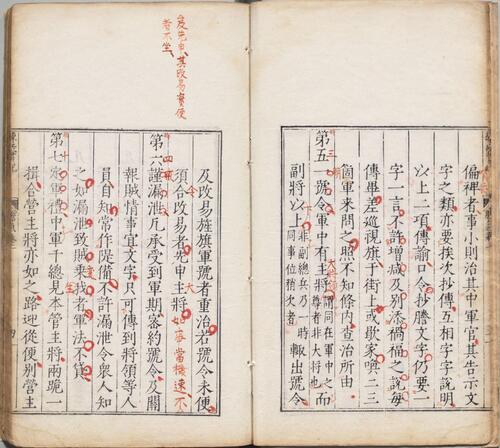 偏裨者事小則治其中軍官其告示文
字之類亦要挨次抄傳互相字字說明
以上二項傳諭口令抄謄文字仍要一
字一言不許增減及別添禍福之說每
傳畢差巡視旗于街上或歇家喚二三
箇軍來問之照不知條內查治所由
第五一號令軍中有主將謂同在軍中之而
尊者非大將也
副將以上非副總兵乃一時
同事位稍次者輒出號令
及先申其改易實便
者不坐
及改易旌旗軍號者重治若號令未便
須合改易者先申主將
如事當機速不
第六謹漏泄凡承受到軍期密約號令及關
報賊情事宜文字只可傳到將領等人
員自知常作隄備不許漏泄令衆人知
之如漏泄致賊乘我者軍法不貸
第七定軍禮中軍千總見本管主將兩跪一
揖合營主將亦如之路迎從便別營主